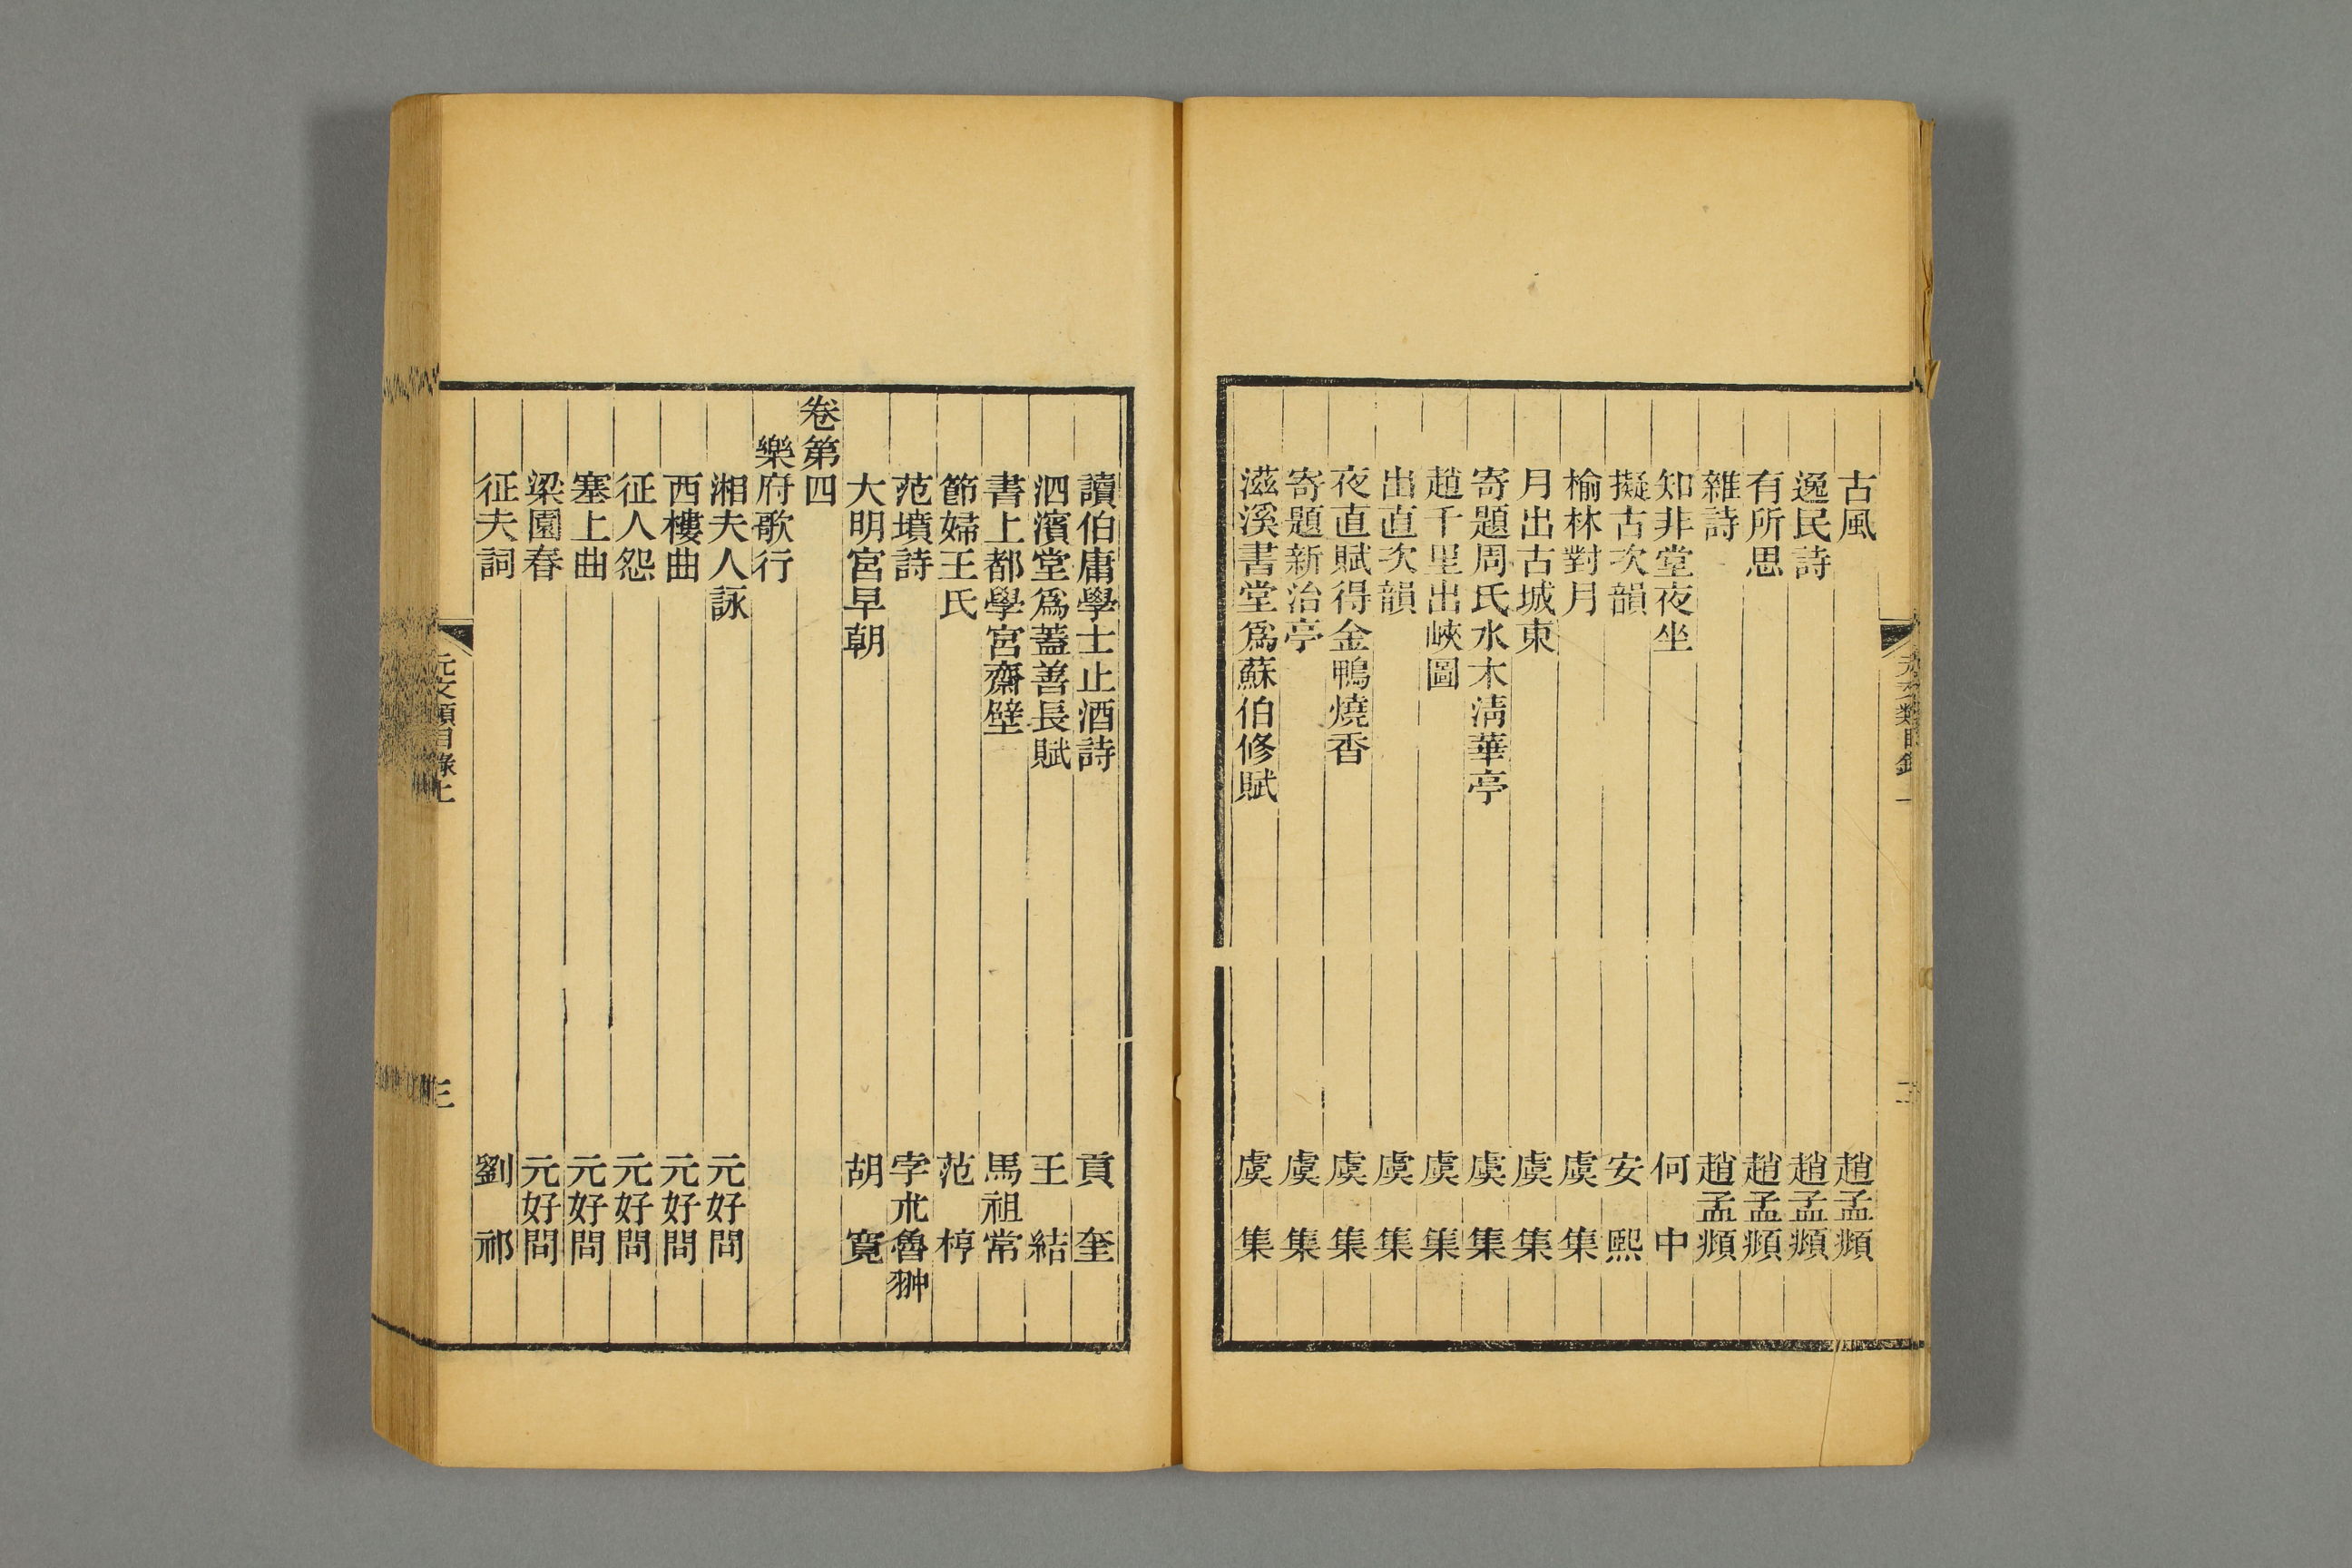 古風　趙孟頫
逸民詩　趙孟頫
有所思　趙孟頫
雜詩　趙孟頫
知非堂夜坐　何中
擬古次韻　安熙
榆林對月　虞集
月出古城東　虞集
寄題周氏水木清華亭　虞集
趙千里出峽圖　虞集
出直次韻　虞集
夜直賦得金鴨燒香　虞集
寄題新治亭　虞集
滋溪書堂爲蘇伯修賦　虞集
讀伯庸學士止酒詩　貢奎
泗濱堂爲蓋善長賦　王結
書上都學宮齋壁　馬祖常
節婦王氏　范梈
范墳詩　孛朮魯翀
大明宮早朝　胡寬
卷第四
樂府歌行
湘夫人詠　元好問
西樓曲　元好問
征人怨　元好問
塞上曲　元好問
梁園春　元好問
征夫詞　劉祁
元文類目錄上
三